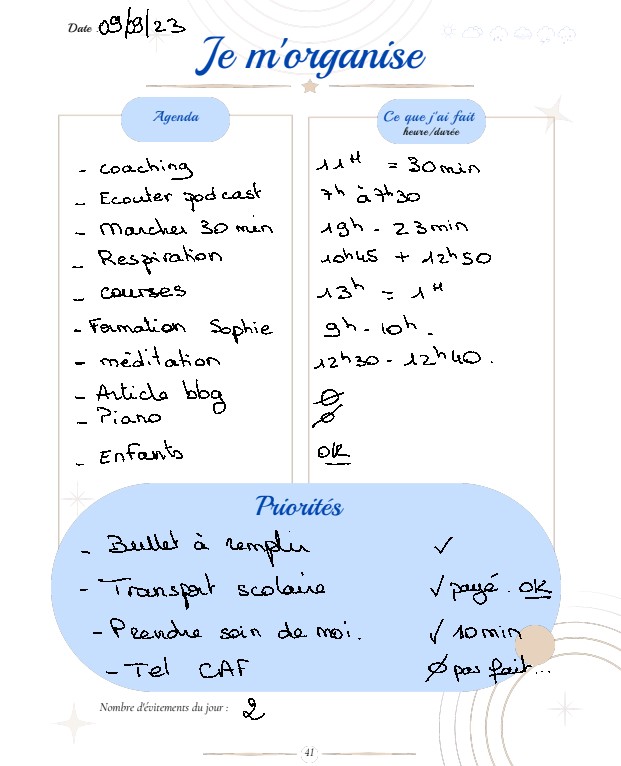 Date : 09/09/23
Je m'organise
Agenda
Ce que j'ai fait
heure/durée
- coaching 11H = 30min
- Ecouter podcast 7h à 7h30
- Marcher 30 min 19h - 23min
- Respiration 10h45 + 12h50
- courses 13h = 1H
- Formation Sophie 9h - 10h.
- méditation 12h30 - 12h40.
- Article blog Ø
- Piano Ø
- Enfants OK
Priorités
- Bullet à remplir ✓
- Transport scolaire ✓ payé. OK
- Prendre soin de moi. ✓ 10min
- Tel CAF Ø pas fait...
Nombre d'évitements du jour : 2
41